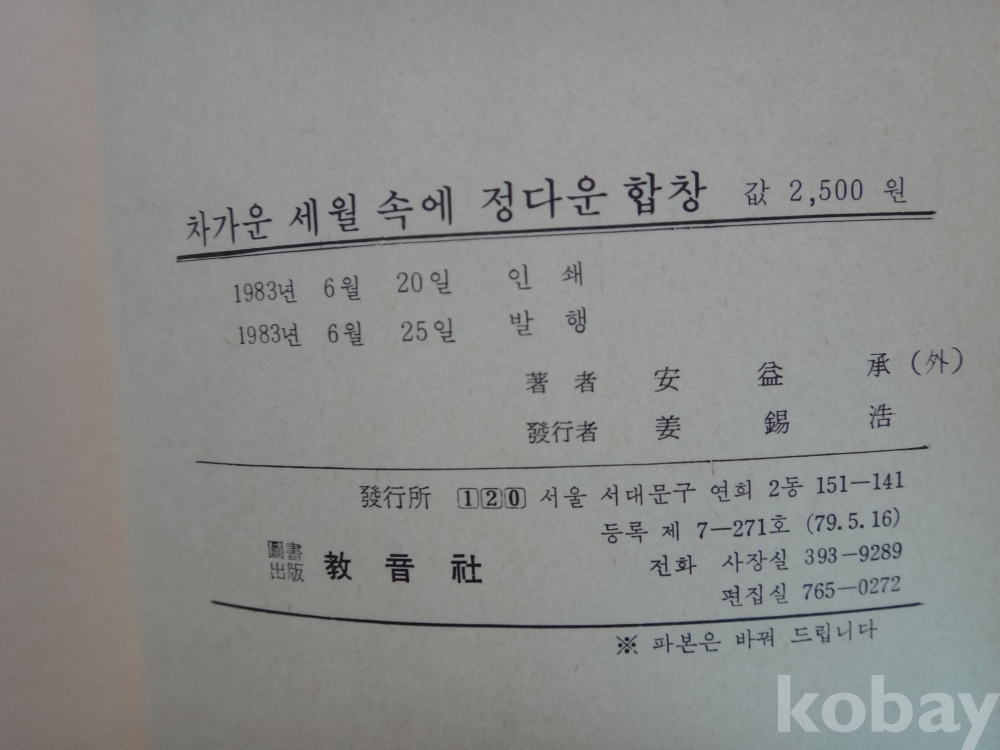 차가운 세월 속에 정다운 합창 값 2,500 원
1983년 6월 20일 인 쇄
1983년 6월 25일 발 행
著 者 安 益 承 (外)
發行者 姜 錫 浩
發行所 120 서울 서대문구 연희 2동 151—141
등록 제 7—271호 (79.5.16)
圖書出版 教 音 社
전화 사장실 393—9289
편집실 765—0272
※ 파본은 바꿔 드립니다
kobay